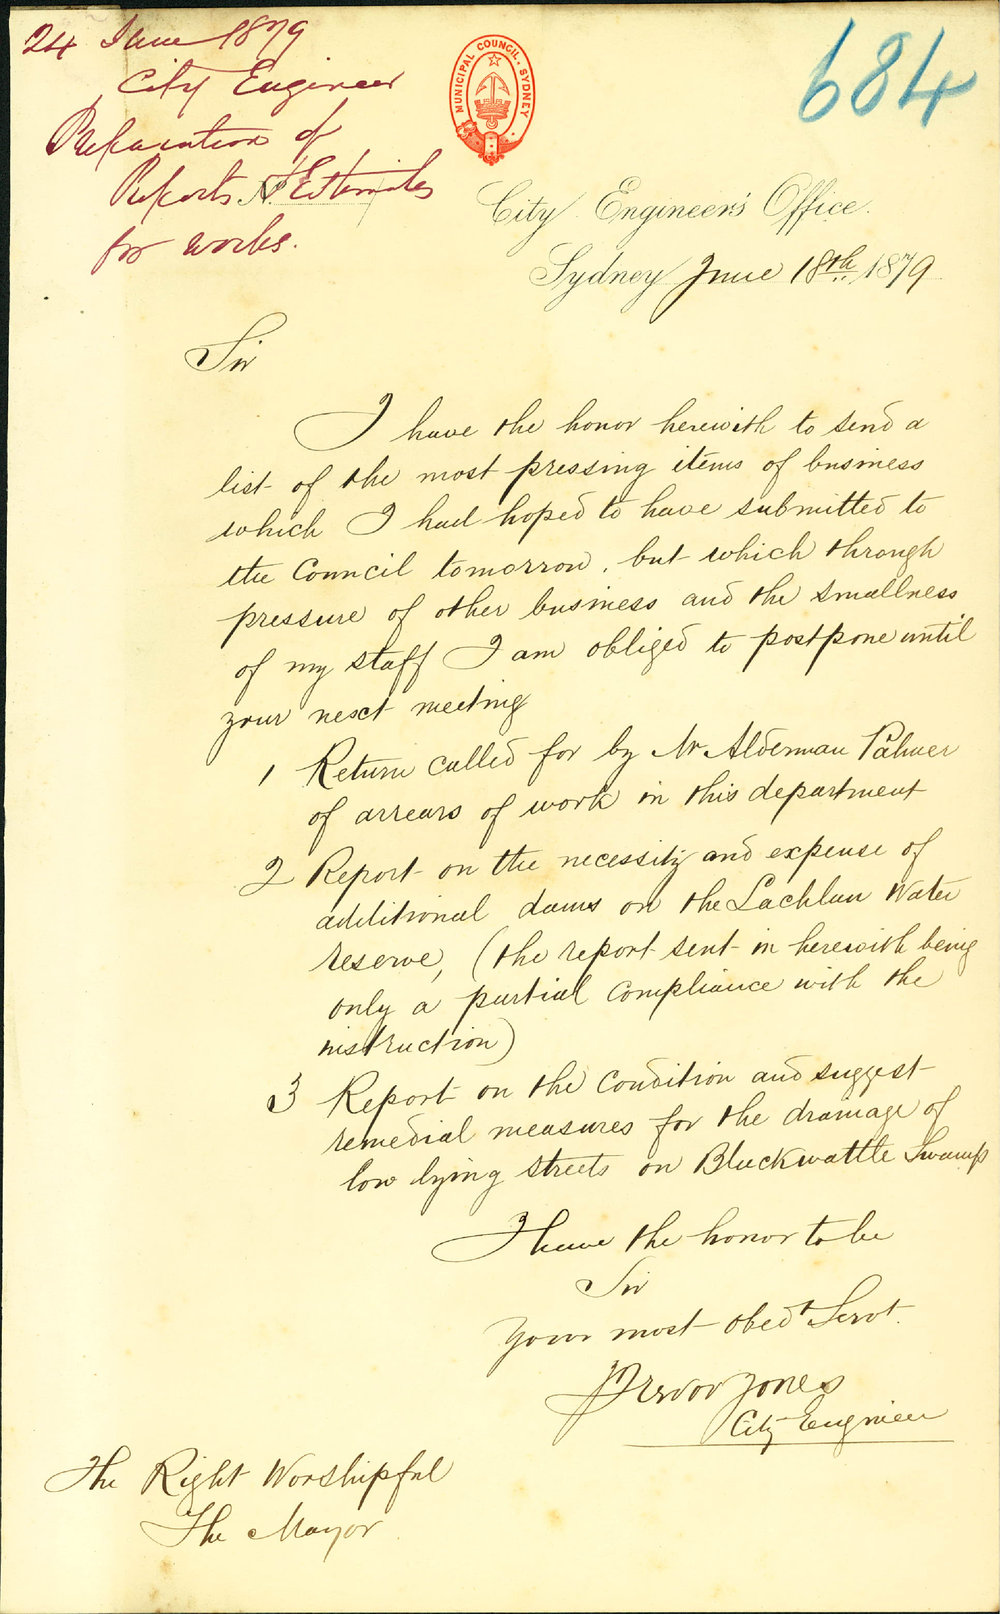 24 June 1879
City Engineer
Preparation of
Reports & Estimates
for works.
MUNICIPAL COUNCIL. SYDNEY.
684
City Engineer's Office.
Sydney June 18th 1879
Sir
I have the honor herewith to send a
list of the most pressing items of business
which I had hoped to have submitted to
the Council tomorrow, but which through
pressure of other business and the smallness
of my staff I am obliged to postpone until
your next meeting
1 Return called for by Mr Alderman Palmer
of arrears of work in this department
2 Report on the necessity and expense of
additional dams on the Lachlan Water
reserve, (the report sent in herewith being
only a partial compliance with the
instruction)
3 Report on the condition and suggest
remedial measures for the drainage of
low lying streets on Blackwattle Swamp
I have the honor to be
Sir
Your most obedt Servt.
Trevor Jones
City Engineer
The Right Worshipful
The Mayor